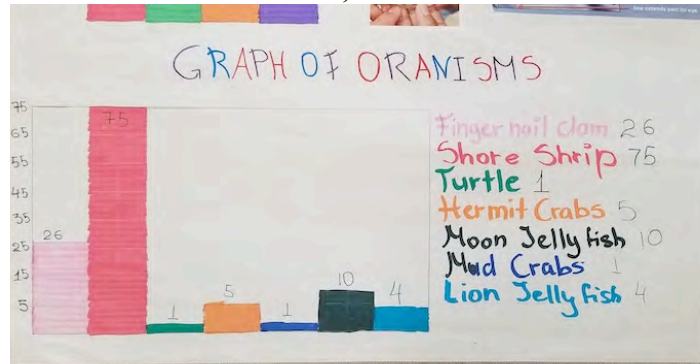 GRAPH OF ORANISMS
75
65
55
45
35
25
15
5
26
75
1
5
1
10
4
Finger nail clam 26
Shore Shrip 75
Turtle 1
Hermit Crabs 5
Moon Jelly fish 10
Mud Crabs 1
Lion Jelly fish 4